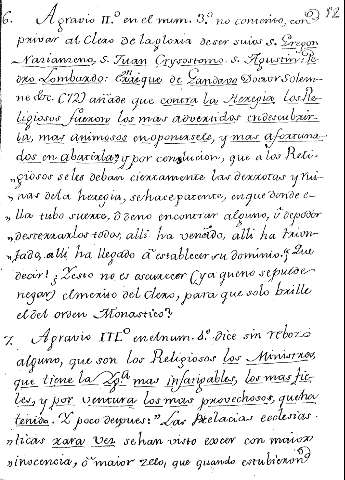 12
6. Agravio II.º en el num. 3.º no contento, con
privar al Clero de la gloria de ser suios S. Gregor.
Nazianzeno, S. Juan Crysostomo. S. Agustin: Pe-
dro Lombardo: de Gandavo Doctor Solem-
ne &c. (12) añade que contra la Heregia los Re-
ligiosos fueron los mas advertidos en descubrir-
la, mas animosos en oponersele, y mas afortuna-
dos en abatirla; y por conclucion, que a los Reli-
„giosos se les deban ciertamente las derrotas y rui-
„nas de la heregia, se hace patente, en que donde e-
„lla tubo suerte, ô de no encontrar alguno, ú de poder
„desterrarlos todos, alli ha vencido, alli ha triun-
„fado, alli ha llegado â establecer su dominio. Que
decir! ¿Y esto no es escurecer (ya que no se puede
negar) el merito del Clero, para que solo brille
el del orden Monastico?
7. Agravio III.º en el num. 8.º dice sin rebozo
alguno, que son los Religiosos los Ministros,
que tiene la Yg.ª mas infatigables, los mas fie-
les, y por ventura los mas provechosos, que ha
tenido. Y poco despues: „Las Prelacias eclesias-
„ticas rara vez se han visto exercer con maior
„inocencia, ô maior zelo, que quando estubieron